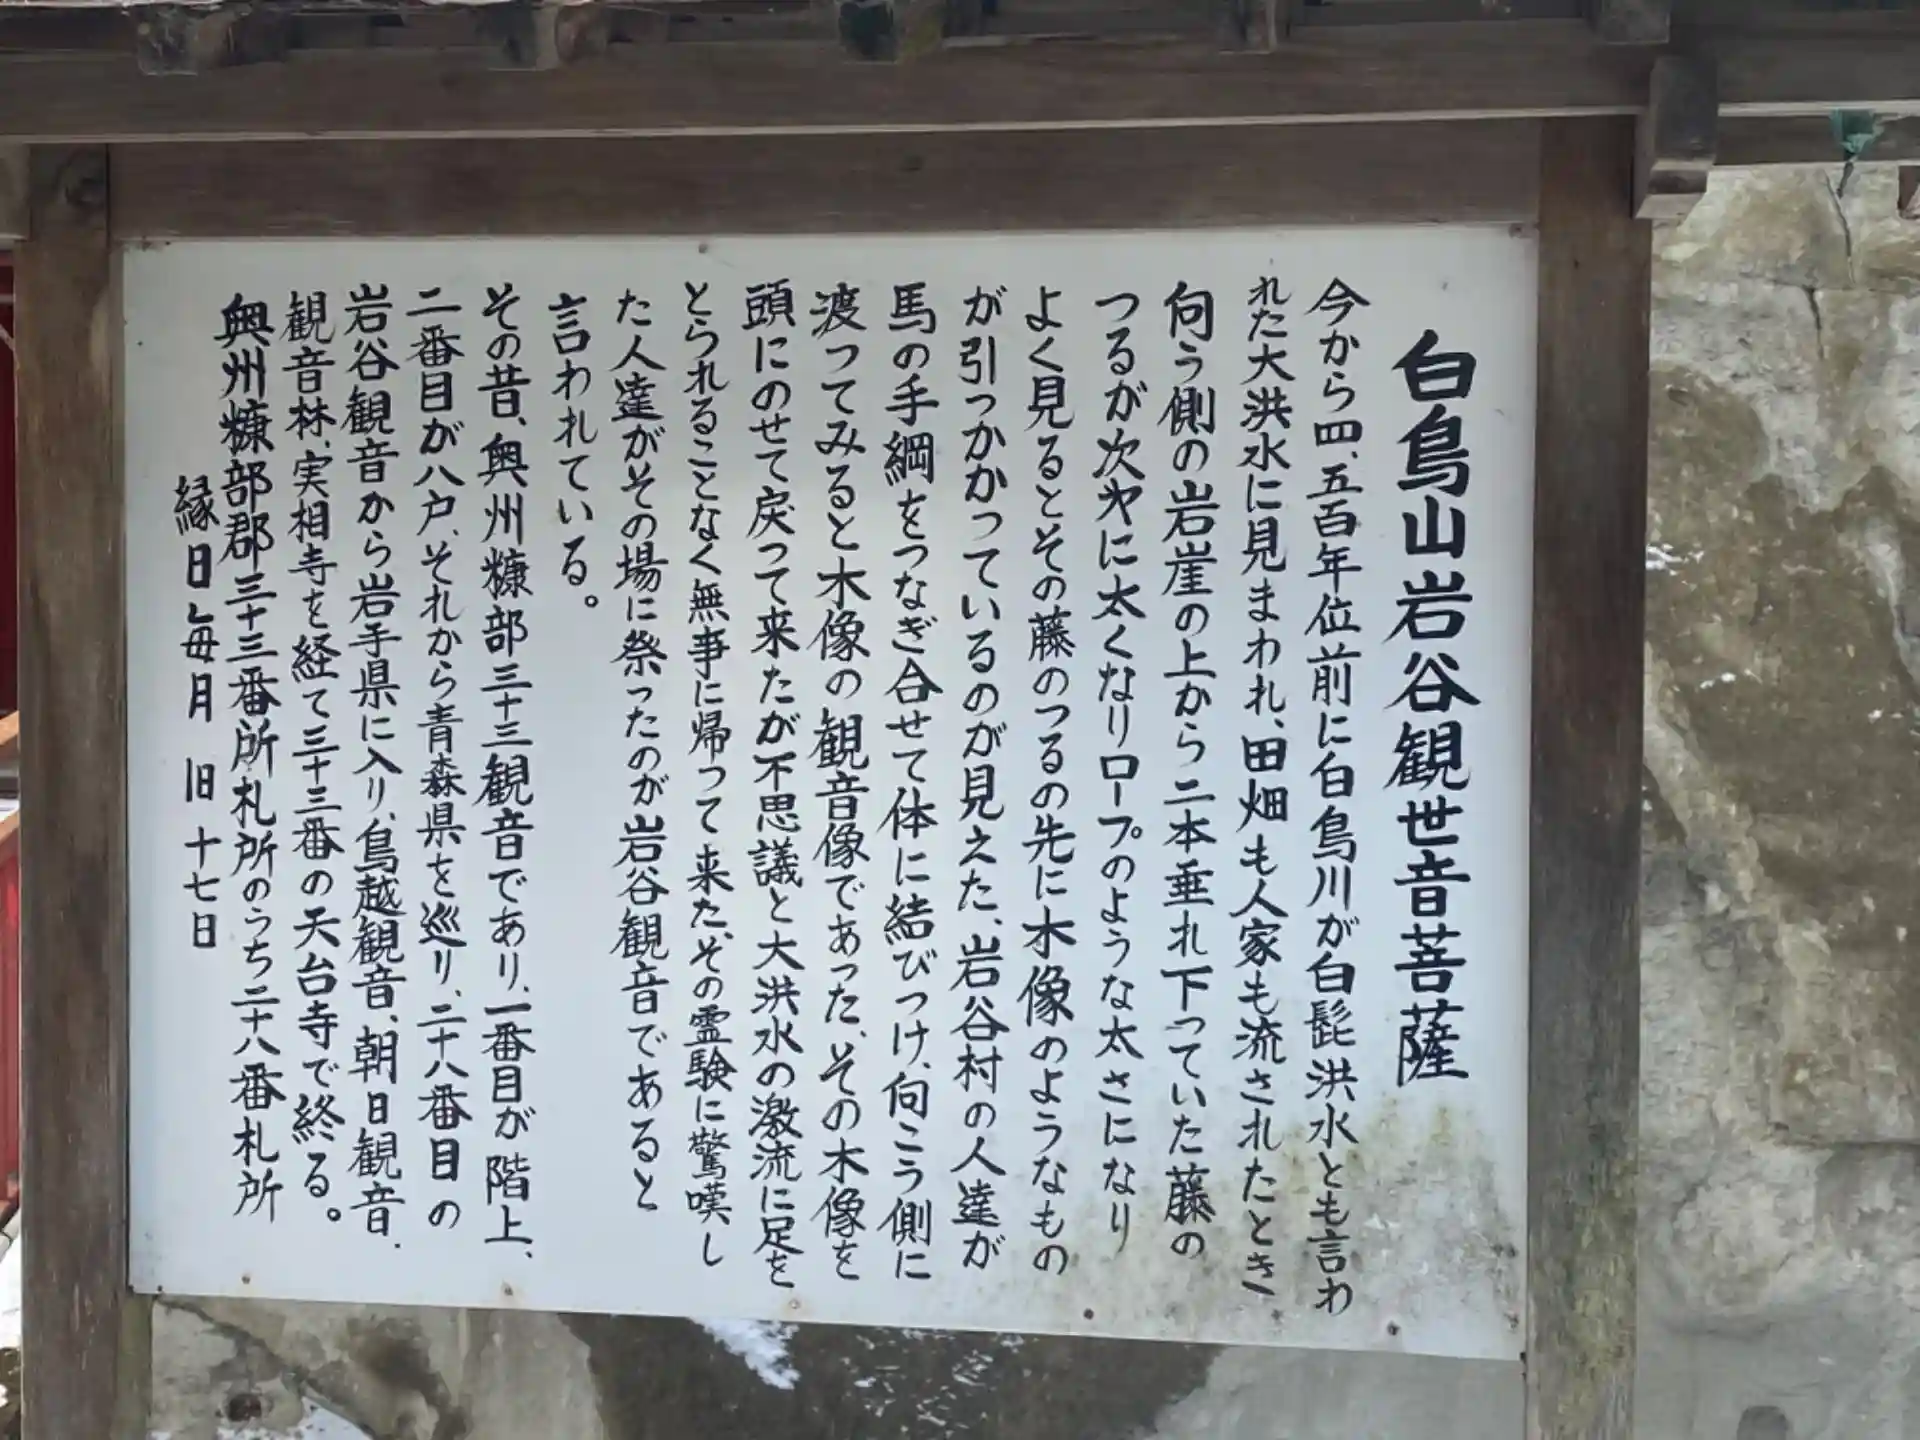 白鳥山岩谷観世音菩薩
今から四、五百年位前に白鳥川が白髭洪水とも言わ
れた大洪水に見まわれ、田畑も人家も流されたとき
向う側の岩崖の上から二本垂れ下っていた藤の
つるが次々に太くなりロープのような太さになり
よく見るとその藤のつるの先に木像のようなもの
が引っかかっているのが見えた、岩谷村の人達が
馬の手綱をつなぎ合せて体に結びつけ、向こう側に
渡ってみると木像の観音像であった、その木像を
頭にのせて戻って来たが不思議と大洪水の激流に足を
とられることなく無事に帰って来た、その霊験に驚嘆し
た人達がその場に祭ったのが岩谷観音であると
言われている。
その昔、奥州糠部三十三観音であり、一番目が階上、
二番目が八戸、それから青森県を巡り、二十八番目の
岩谷観音から岩手県に入り、鳥越観音、朝日観音、
観音林、実相寺を経て三十三番の天台寺で終る。
奥州糠部郡三十三番所札所のうち二十八番札所
縁日毎月 旧十七日